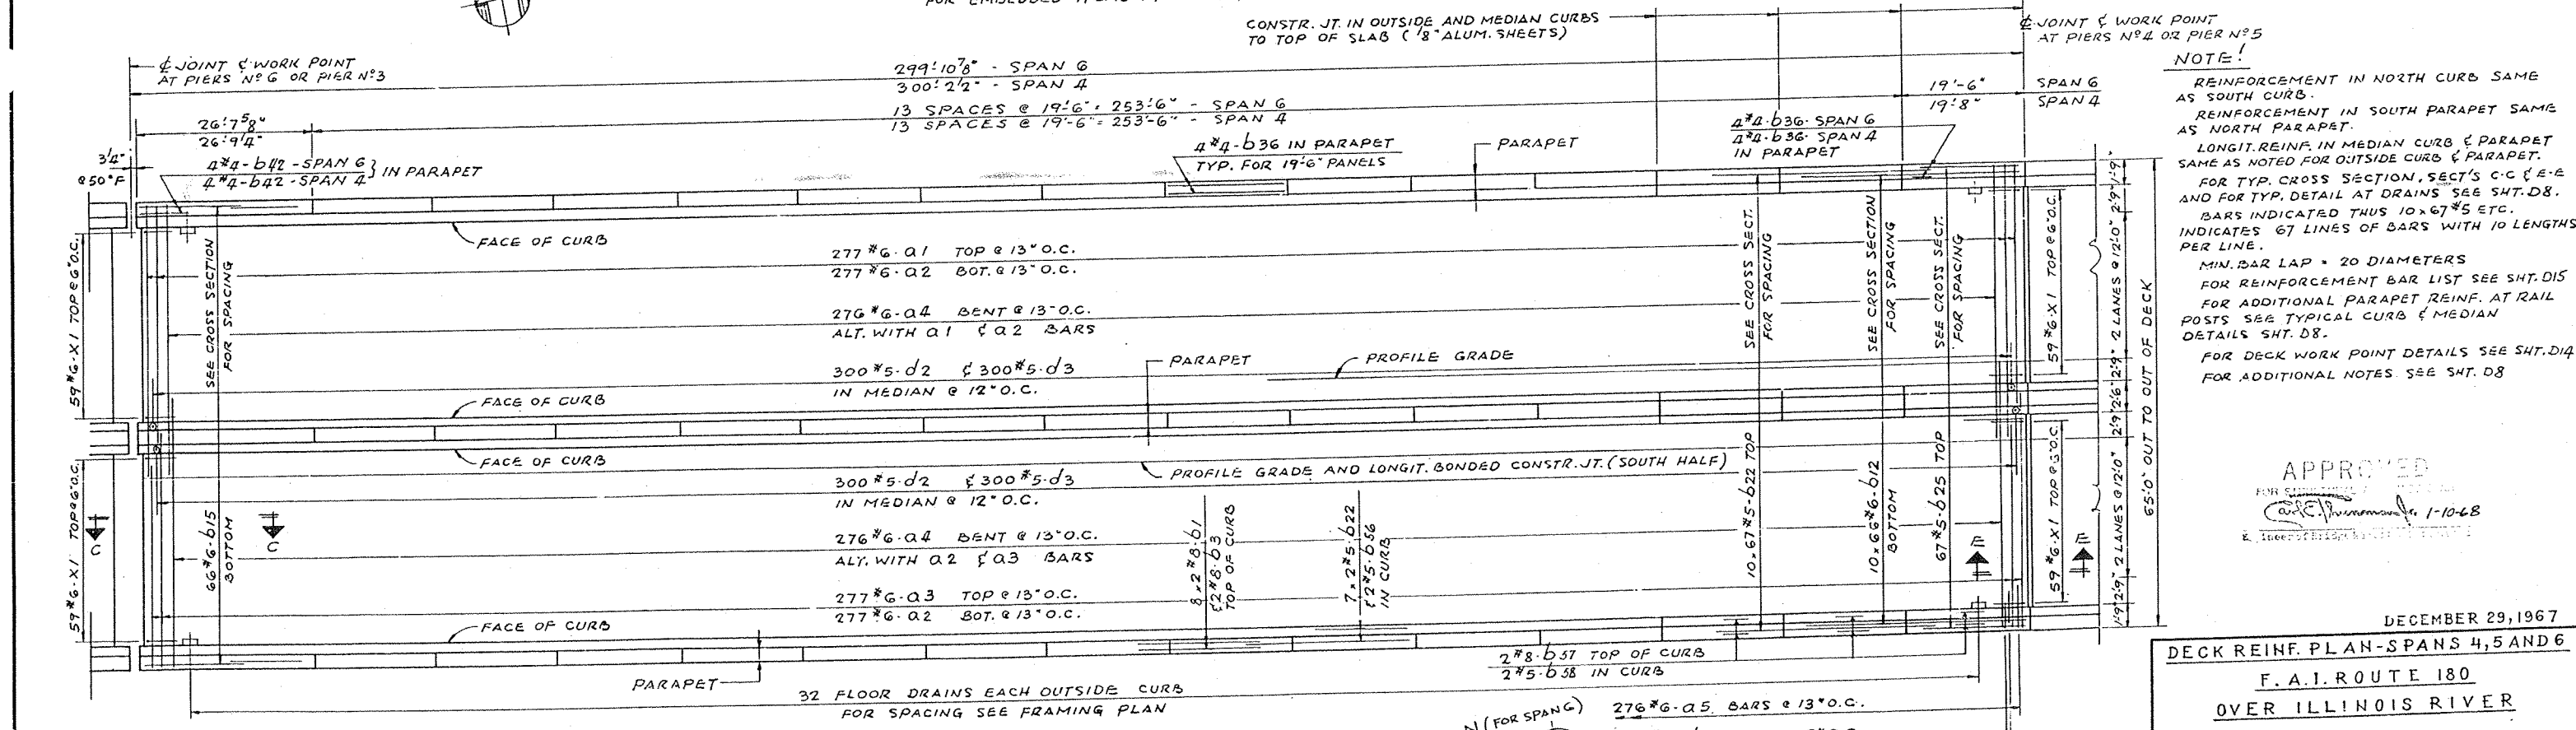 CONSTR. JT. IN OUTSIDE AND MEDIAN CURBS
TO TOP OF SLAB (1/8" ALUM. SHEETS)
℄ JOINT & WORK POINT
AT PIERS Nº 6 OR PIER Nº3
℄ JOINT & WORK POINT
AT PIERS Nº4 OR PIER Nº5
299'-10 7/8" - SPAN 6
300'-2 1/2" - SPAN 4
13 SPACES @ 19'-6" = 253'-6" - SPAN 6
13 SPACES @ 19'-6" = 253'-6" - SPAN 4
19'-6" SPAN 6
19'-8" SPAN 4
26'-7 5/8"
26'-9 1/4"
3 1/4"
@ 50°F
4#4-b42-SPAN 6
4#4-b42-SPAN 4
} IN PARAPET
4#4-b36 IN PARAPET
TYP. FOR 19'-6" PANELS
PARAPET
4#4-b36-SPAN 6
4#4-b36-SPAN 4
IN PARAPET
FACE OF CURB
277#6-a1 TOP @ 13" O.C.
277#6-a2 BOT. @ 13" O.C.
276#6-a4 BENT @ 13" O.C.
ALT. WITH a1 & a2 BARS
300#5-d2 & 300#5-d3
IN MEDIAN @ 12" O.C.
PARAPET
PROFILE GRADE
FACE OF CURB
FACE OF CURB
PROFILE GRADE AND LONGIT. BONDED CONSTR. JT. (SOUTH HALF)
300#5-d2 & 300#5-d3
IN MEDIAN @ 12" O.C.
276#6-a4 BENT @ 13" O.C.
ALT. WITH a2 & a3 BARS
277#6-a3 TOP @ 13" O.C.
277#6-a2 BOT. @ 13" O.C.
FACE OF CURB
PARAPET
32 FLOOR DRAINS EACH OUTSIDE CURB
FOR SPACING SEE FRAMING PLAN
59#6-X1 TOP @ 6" O.C.
59#6-X1 TOP @ 6" O.C.
SEE CROSS SECTION
FOR SPACING
66#6-b15
BOTTOM
C
C
8x2#8-b1
& 2#8-b3
TOP OF CURB
7x2#5-b22
& 2#5-b56
IN CURB
SEE CROSS SECT.
FOR SPACING
SEE CROSS SECTION
FOR SPACING
SEE CROSS SECT.
FOR SPACING
10x67#5-b22 TOP
10x66#6-b12
BOTTOM
67#5-b25 TOP
E
E
59#6-X1 TOP @ 6" O.C.
59#6-X1 TOP @ 6" O.C.
1'-9" 2'-9" 2 LANES @ 12'-0" 2'-9" 2'-6" 2'-9" 2 LANES @ 12'-0" 2'-9" 1'-9"
65'-0" OUT TO OUT OF DECK
2#8-b57 TOP OF CURB
2#5-b58 IN CURB
(FOR SPAN 6)
276#6-a5 BARS @ 13" O.C.
NOTE!
REINFORCEMENT IN NORTH CURB SAME
AS SOUTH CURB.
REINFORCEMENT IN SOUTH PARAPET SAME
AS NORTH PARAPET.
LONGIT. REINF. IN MEDIAN CURB & PARAPET
SAME AS NOTED FOR OUTSIDE CURB & PARAPET.
FOR TYP. CROSS SECTION, SECT'S C-C & E-E
AND FOR TYP. DETAIL AT DRAINS SEE SHT. D8.
BARS INDICATED THUS 10x67#5 ETC.
INDICATES 67 LINES OF BARS WITH 10 LENGTHS
PER LINE.
MIN. BAR LAP = 20 DIAMETERS
FOR REINFORCEMENT BAR LIST SEE SHT. D15
FOR ADDITIONAL PARAPET REINF. AT RAIL
POSTS SEE TYPICAL CURB & MEDIAN
DETAILS SHT. D8.
FOR DECK WORK POINT DETAILS SEE SHT. D14
FOR ADDITIONAL NOTES SEE SHT. D8
APPROVED
FOR
1-10-68
DECEMBER 29, 1967
DECK REINF. PLAN-SPANS 4, 5 AND 6
F. A. I. ROUTE 180
OVER ILLINOIS RIVER